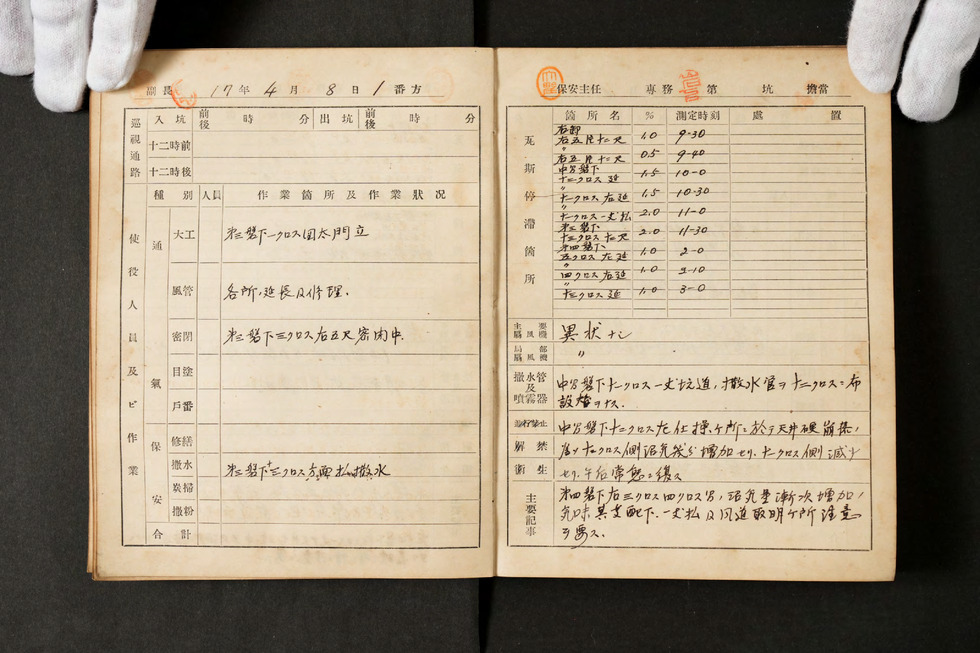 副長 17年4月8日1番方
巡視通路 入坑 前後 時 分 出坑 前後 時 分
十二時前
十二時後
使役人員及ビ作業
種別 人員 作業箇所及作業状况
通氣
大工 第三盤下一クロス風門立
風管 各所、延長及修理、
密閉 第三盤下三クロス右五尺密閉中、
目塗
戶番
保安
修繕
撒水 第三盤下十三クロス方面払撒水
炭掃
撒粉
合計
保安主任 専務 第 坑 擔當
瓦斯停滞箇所
箇所名 % 測定時刻 處置
右卸
右五片十二尺 1.0 9-30
〃
右五片十二尺 0.5 9-40
中分盤下
十二クロス延 1.5 10-0
〃
十一クロス右延 1.5 10-30
〃
十一クロス一丈払 2.0 11-0
第三盤下
十三クロス七尺 2.0 11-30
第四盤下
五クロス左延 1.0 2-0
〃
四クロス右延 1.0 2-10
十三クロス延 1.0 3-0
主要扇風機 異状ナシ
局部扇風機 〃
撒水管及噴霧器
中分盤下十一クロス一丈坑道、撒水管ヲ十二クロスニ布
設替ヲナス、
解禁
中分盤下十二クロス左仕操ケ所ニ於テ天井硬崩集、
衞生
セリ、午后常態ニ復ス
主要記事
第四盤下右三クロス四クロス宮、沼気量漸次増加ノ
気味其支配下、一丈払及同進取明ケ所注意
ヲ要ス、